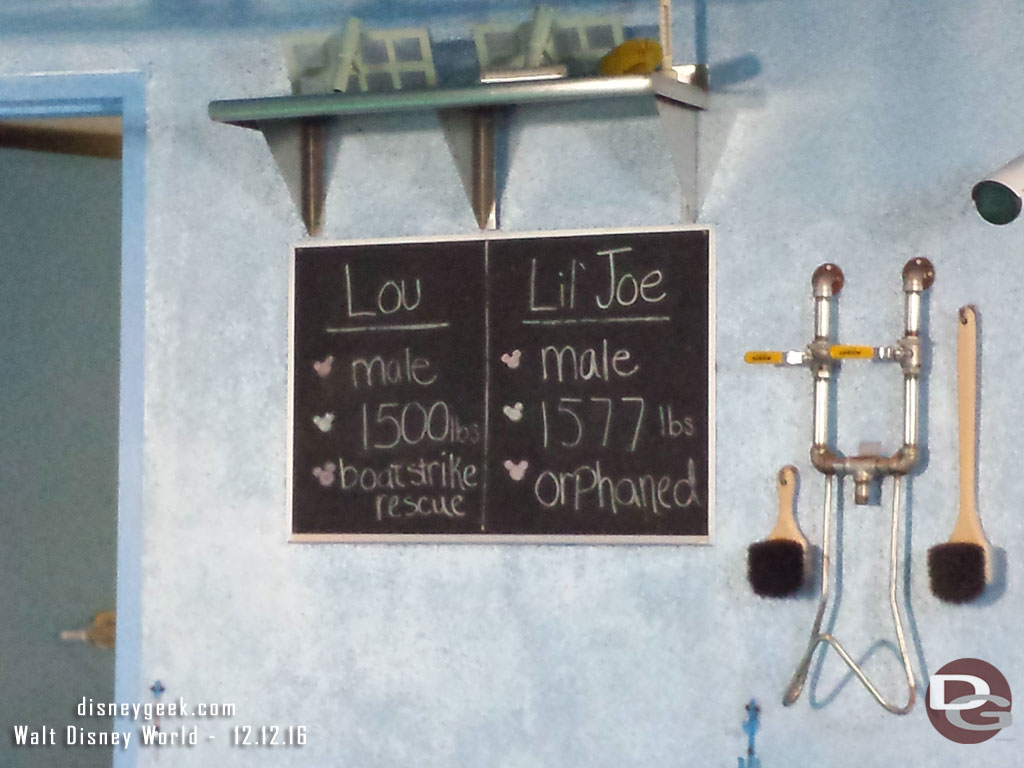 Lou
male
1500lbs
boatstrike
rescue
Lil' Joe
male
1577 lbs
orphaned
disneygeek.com
Walt Disney World - 12.12.16
DG